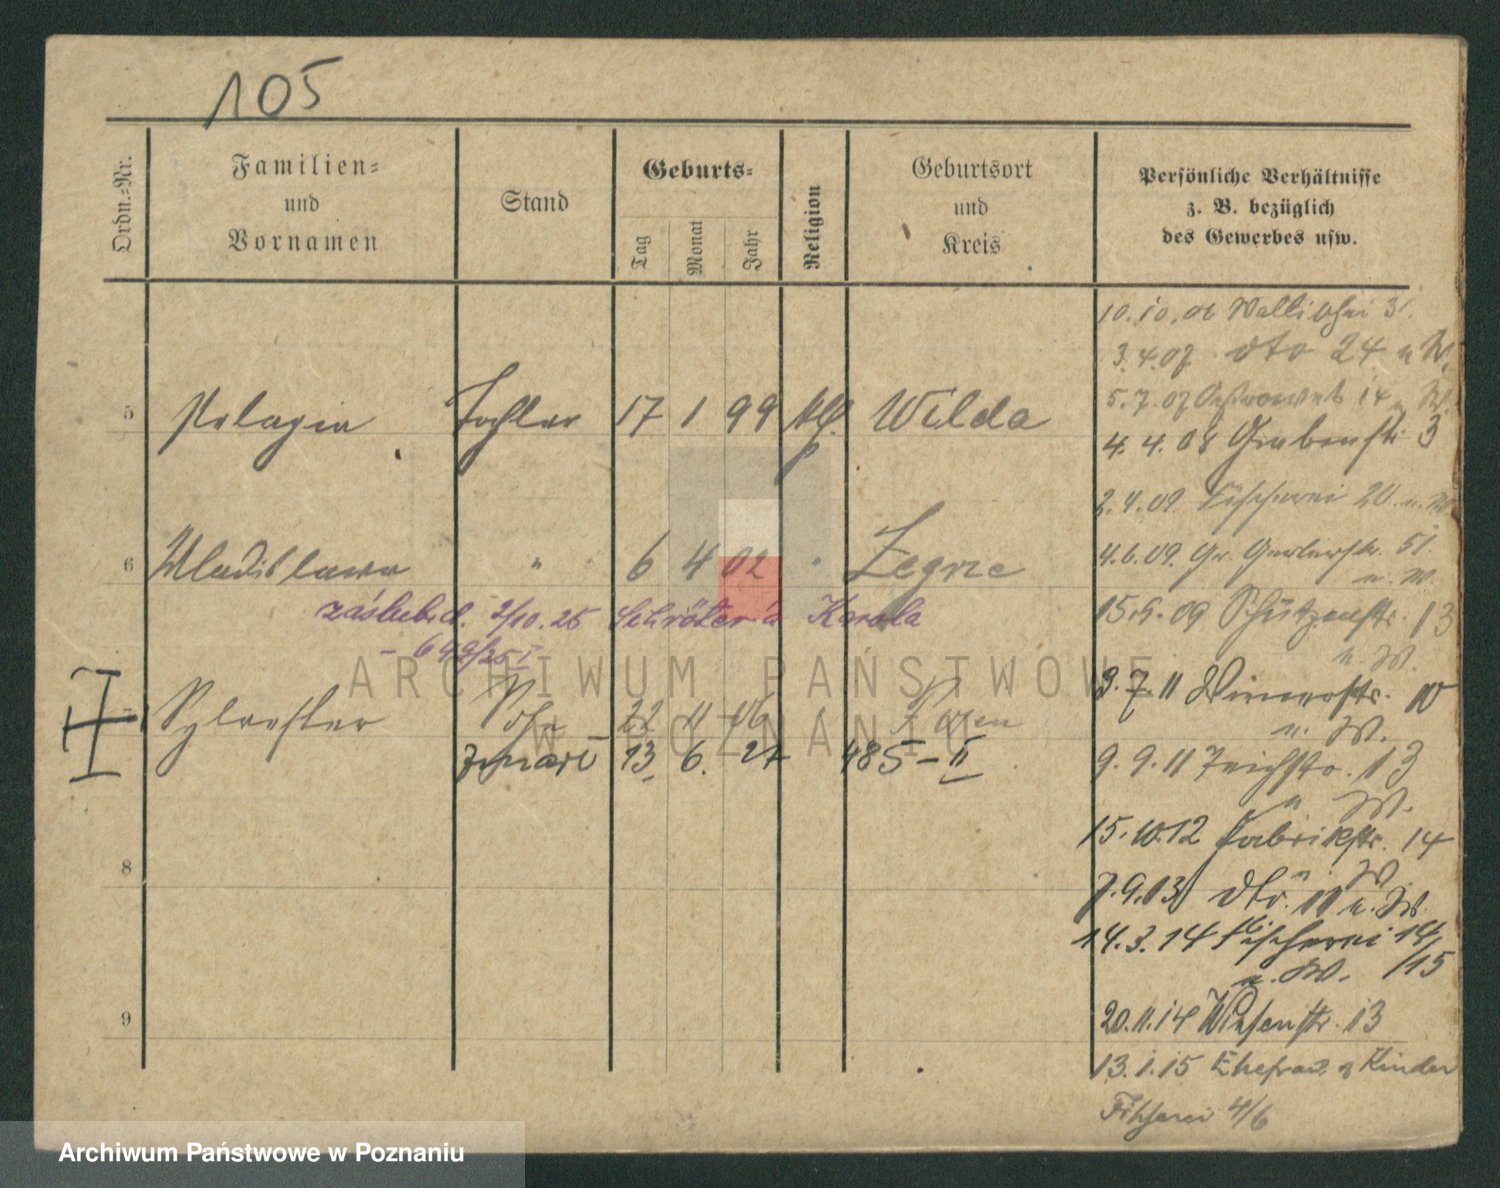 105
Ordn.-Nr.
Familien-
und
Vornamen
Stand
Geburts-
Tag
Monat
Jahr
Religion
Geburtsort
und
Kreis
Persönliche Verhältnisse
z. B. bezüglich
des Gewerbes usw.
10.10.06 Wallischei 3
3.4.07 dto 24 u W.
5.7.07 Ostrowek 14 u W.
5 Pelagia Tochter 17 1 99 kth. Wilda
4.4.08 Grabenstr. 3
2.4.09 Fischerei 20 u. W
6 Wladislawa " 6 4 02 " Zegrze
4.6.09. Gr. Gerberstr. 51.
u. W.
zaślub. d. 2/10.25 Schröter'a Karola
- 649/25 I
15.9.09 Schützenstr. 13
u. W.
7 Sylvester Sohn 22 11 06 Posen
zmarł 13 6. 27 485-II
3.7.11 Wienerstr. 10
u. W.
9.9.11 Teichstr. 13
u W.
15.10.12 Fabrikstr. 14
u W.
8
7.9.13 dto. 11 u. W.
14.3.14 Fischerei 14/15
u. W.
9
20.11.14 Wiesenstr. 13
13.1.15 Ehefrau u Kinder
Fischerei 4/6
ARCHIWUM PAŃSTWOWE
W POZNANIU
Archiwum Państwowe w Poznaniu